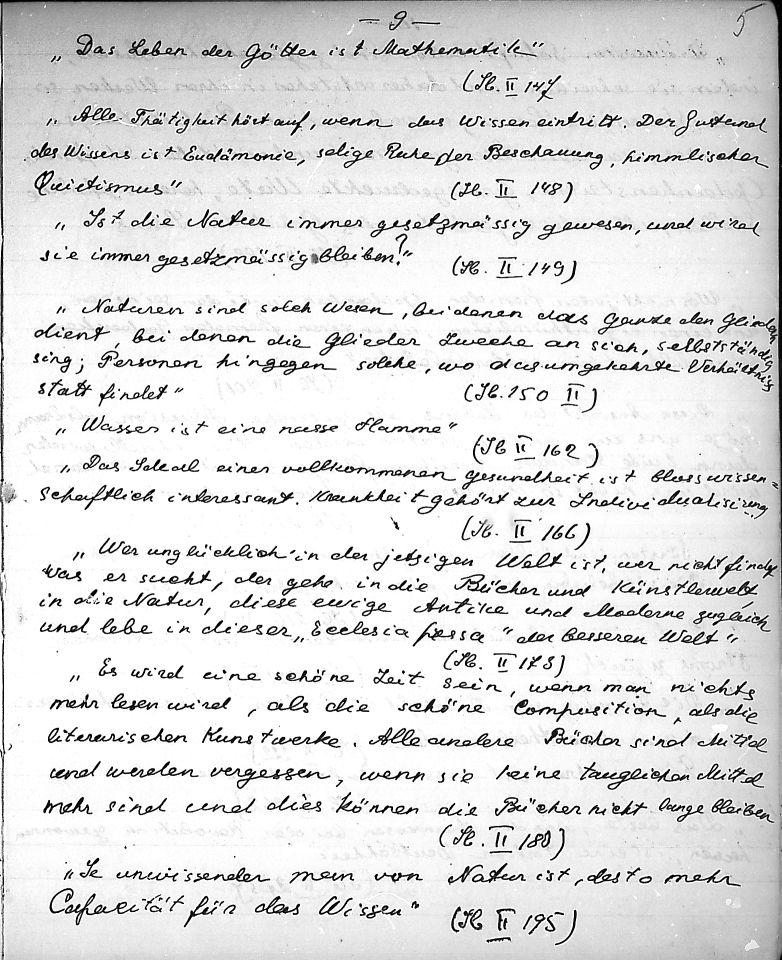 — 9 —
5
„Das Leben der Götter ist Mathematik"
(Ib. II 147
„Alle Thätigkeit hört auf, wenn das Wissen eintritt. Der Zustand
des Wissens ist Eudämonie, selige Ruhe der Beschauung, himmlischer
Quietismus" (Ib. II 148)
„Ist die Natur immer gesetzmässig gewesen, und wird
sie immer gesetzmässig bleiben?" (Ib. II 149)
„Naturen sind solch Wesen, bei denen das Ganze den Gliedern
dient, bei denen die Glieder Zwecke an sich, selbstständig
sing; Personen hingegen solche, wo das umgekehrte Verhältnis
statt findet" (Ib. 150 II)
„Wasser ist eine nasse Flamme"
(Ib II 162)
„Das Ideal einer vollkommenen gesundheit ist blosswissen=
schaftlich interessant. Krankheit gehört zur Individualisirung"
(Ib. II 166)
„Wer unglücklich in der jetzigen Welt ist, wer nicht findet
was er sucht, der gehe in die Bücher und Künstlerwelt,
in die Natur, diese ewige Antike und Moderne zugleich
und lebe in dieser „Ecclesia pressa" der besseren Welt"
(Ib. II 173)
„Es wird eine schöne Zeit sein, wenn man nichts
mehr lesen wird, als die schöne Composition, als die
literarischen Kunstwerke. Alle andere Bücher sind Mittel
und werden vergessen, wenn sie keine tauglichen Mittel
mehr sind und dies können die Bücher nicht lange bleiben
(Ib. II 180)
„Je unwissender man von Natur ist, desto mehr
Capacität für das Wissen" (Ib II 195)